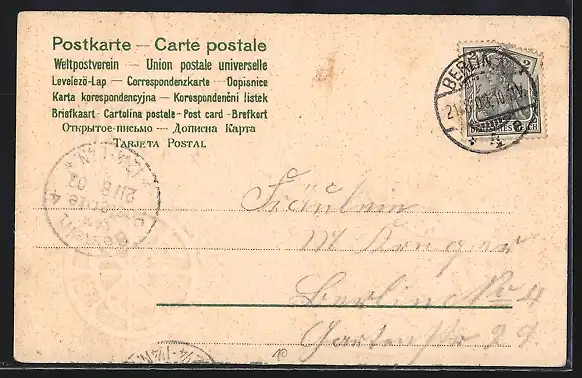 Postkarte — Carte postale
Weltpostverein — Union postale universelle
Levelező-Lap — Correspondenzkarte — Dopisnice
Karta korespondencyjna — Korespondenční listek
Briefkaart - Cartolina postale - Post card - Brefkort
Открытое письмо — Дописна Карта
Tarjeta Postal
BERLIN
2
DEUTSCHES REICH
Fräulein
M Krüger
Berlin No 4
Gartenstr 29.